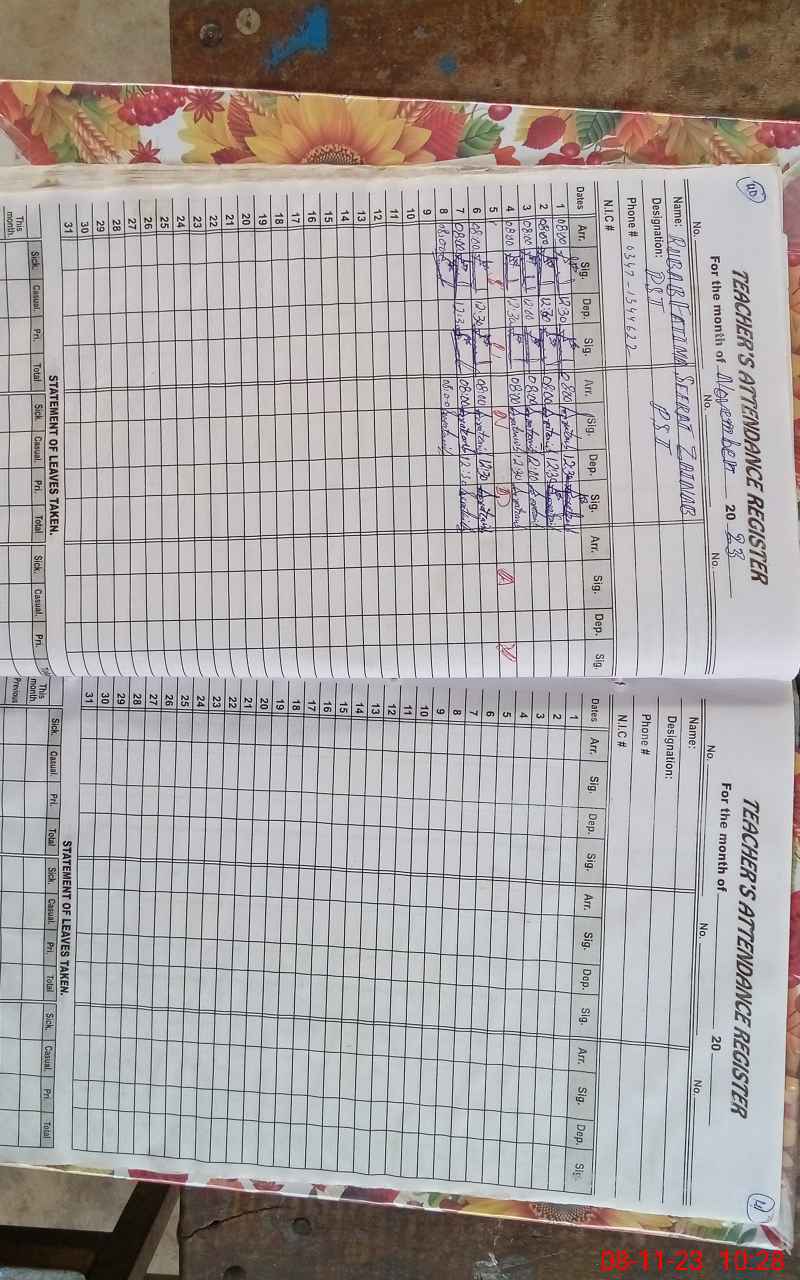 40
TEACHER'S ATTENDANCE REGISTER
For the month of November 20 23
No. No. No.
Name: RUBAB FATIMA SEERAT ZAINAB
Designation: PST PST
Phone # 0347-1344622
N.I.C #
Dates Arr. Sig. Dep. Sig. Arr. Sig. Dep. Sig. Arr. Sig. Dep. Sig.
1 08:00 12:30 08:00 12:30
2 08:00 12:30 08:00 12:30
3 08:00 12:00 08:00 12:00
4 08:00 12:30 08:00 12:30
5
6 08:00 12:30 08:00 12:30
7 08:00 12:30 08:00 12:30
8 08:00 08:00
9
10
11
12
13
14
15
16
17
18
19
20
21
22
23
24
25
26
27
28
29
30
31
STATEMENT OF LEAVES TAKEN.
Sick. Casual. Pri. Total Sick. Casual. Pri. Total Sick. Casual. Pri.
This month.
41
TEACHER'S ATTENDANCE REGISTER
For the month of 20
No. No. No.
Name:
Designation:
Phone #
N.I.C #
Dates Arr. Sig. Dep. Sig. Arr. Sig. Dep. Sig. Arr. Sig. Dep. Sig.
1
2
3
4
5
6
7
8
9
10
11
12
13
14
15
16
17
18
19
20
21
22
23
24
25
26
27
28
29
30
31
STATEMENT OF LEAVES TAKEN.
Sick. Casual. Pri. Total Sick. Casual. Pri. Total Sick. Casual. Pri. Total
This month
Previous
08-11-23 10:28